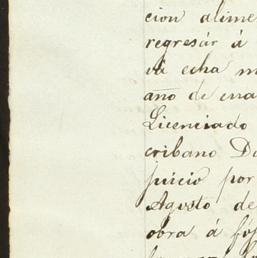 cion alime
regresár á
vá echa m
año de ma
Licenciado
cribano D
juicio por
Agosto de
obra á foj